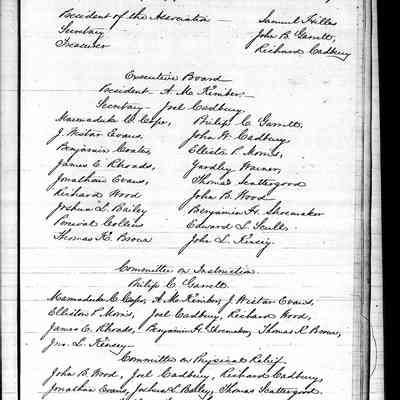 President of the Association — Samuel Hilles
Secretary John B. Garrett,
Treasurer Richard Cadbury
Executive Board
President A. M. Kimber,
Secretary Joel Cadbury,
Marmaduke C. Cope, Philip C. Garrett,
J. Wistar Evans, John W. Cadbury
Benjamin Coates, Elliston P. Morris,
James E. Rhoads, Yardley Warner,
Jonathan Evans, Thomas Scattergood
Richard Wood John B. Wood
Joshua L. Bailey Benjamin H. Shoemaker
Percival Collins Edward L. Scull
Thomas K. Brown John L. Kinsey
Committee on Instruction
Philip C. Garrett
Marmaduke C. Cope, A. M. Kimber, J. Wistar Evans,
Elliston P. Morris, Joel Cadbury, Richard Wood,
James E. Rhoads, Benjamin H. Shoemaker, Thomas K. Brown,
Jno. L. Kinsey
Committee on Physical Relief,
John B. Wood, Joel Cadbury, Richard Cadbury,
Jonathan Evans, Joshua L. Bailey, Thomas Scattergood